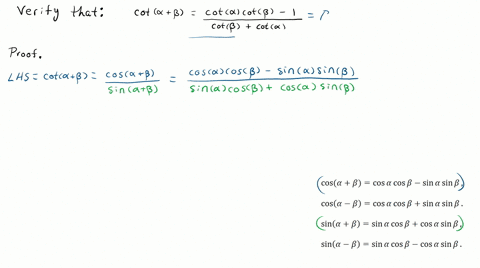 Verify that: cot(α+β) = (cot(α)cot(β) - 1)/(cot(β) + cot(α)) =
Proof.
LHS = cot(α+β) = cos(α+β)/sin(α+β) = (cos(α)cos(β) - sin(α)sin(β))/(sin(α)cos(β) + cos(α)sin(β))
cos(α + β) = cos α cos β − sin α sin β.
cos(α − β) = cos α cos β + sin α sin β.
sin(α + β) = sin α cos β + cos α sin β.
sin(α − β) = sin α cos β − cos α sin β.